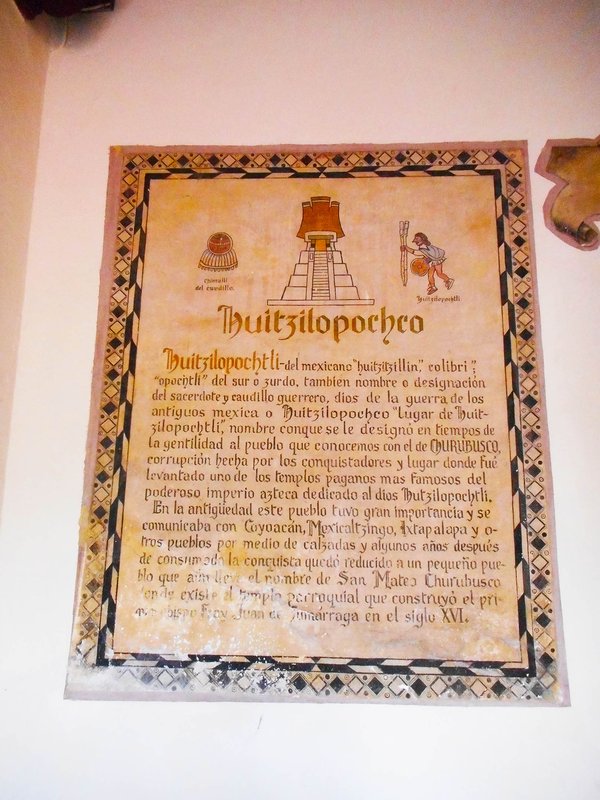 Chimalli
del caudillo.
Huitzilopochtli
Huitzilopochco
Huitzilopochtli-del mexicano "huitzitzillin," colibri";
"opochtli" del sur ó zurdo, tambien nombre o designación
del sacerdote y caudillo guerrero, dios de la guerra de los
antiguos mexica o Huitzilopochco "lugar de Huit-
zilopochtli," nombre conque se le designó en tiempos de
la gentilidad al pueblo que conocemos con el de CHURUBUSCO,
corrupción hecha por los conquistadores y lugar donde fué
levantado uno de los templos paganos mas famosos del
poderoso imperio azteca dedicado al dios Hutzilopochtli.
En la antigüedad este pueblo tuvo gran importancia y se
comunicaba con Coyoacán, Mexicaltzingo, Ixtapalapa y o-
tros pueblos por medio de calzadas y algunos años después
de consumada la conquista quedó reducido a un pequeño pue-
blo que aún lleva el nombre de San Mateo Churubusco
donde existe el templo parroquial que construyó el pri-
mer obispo Fray Juan de Zumárraga en el siglo XVI.